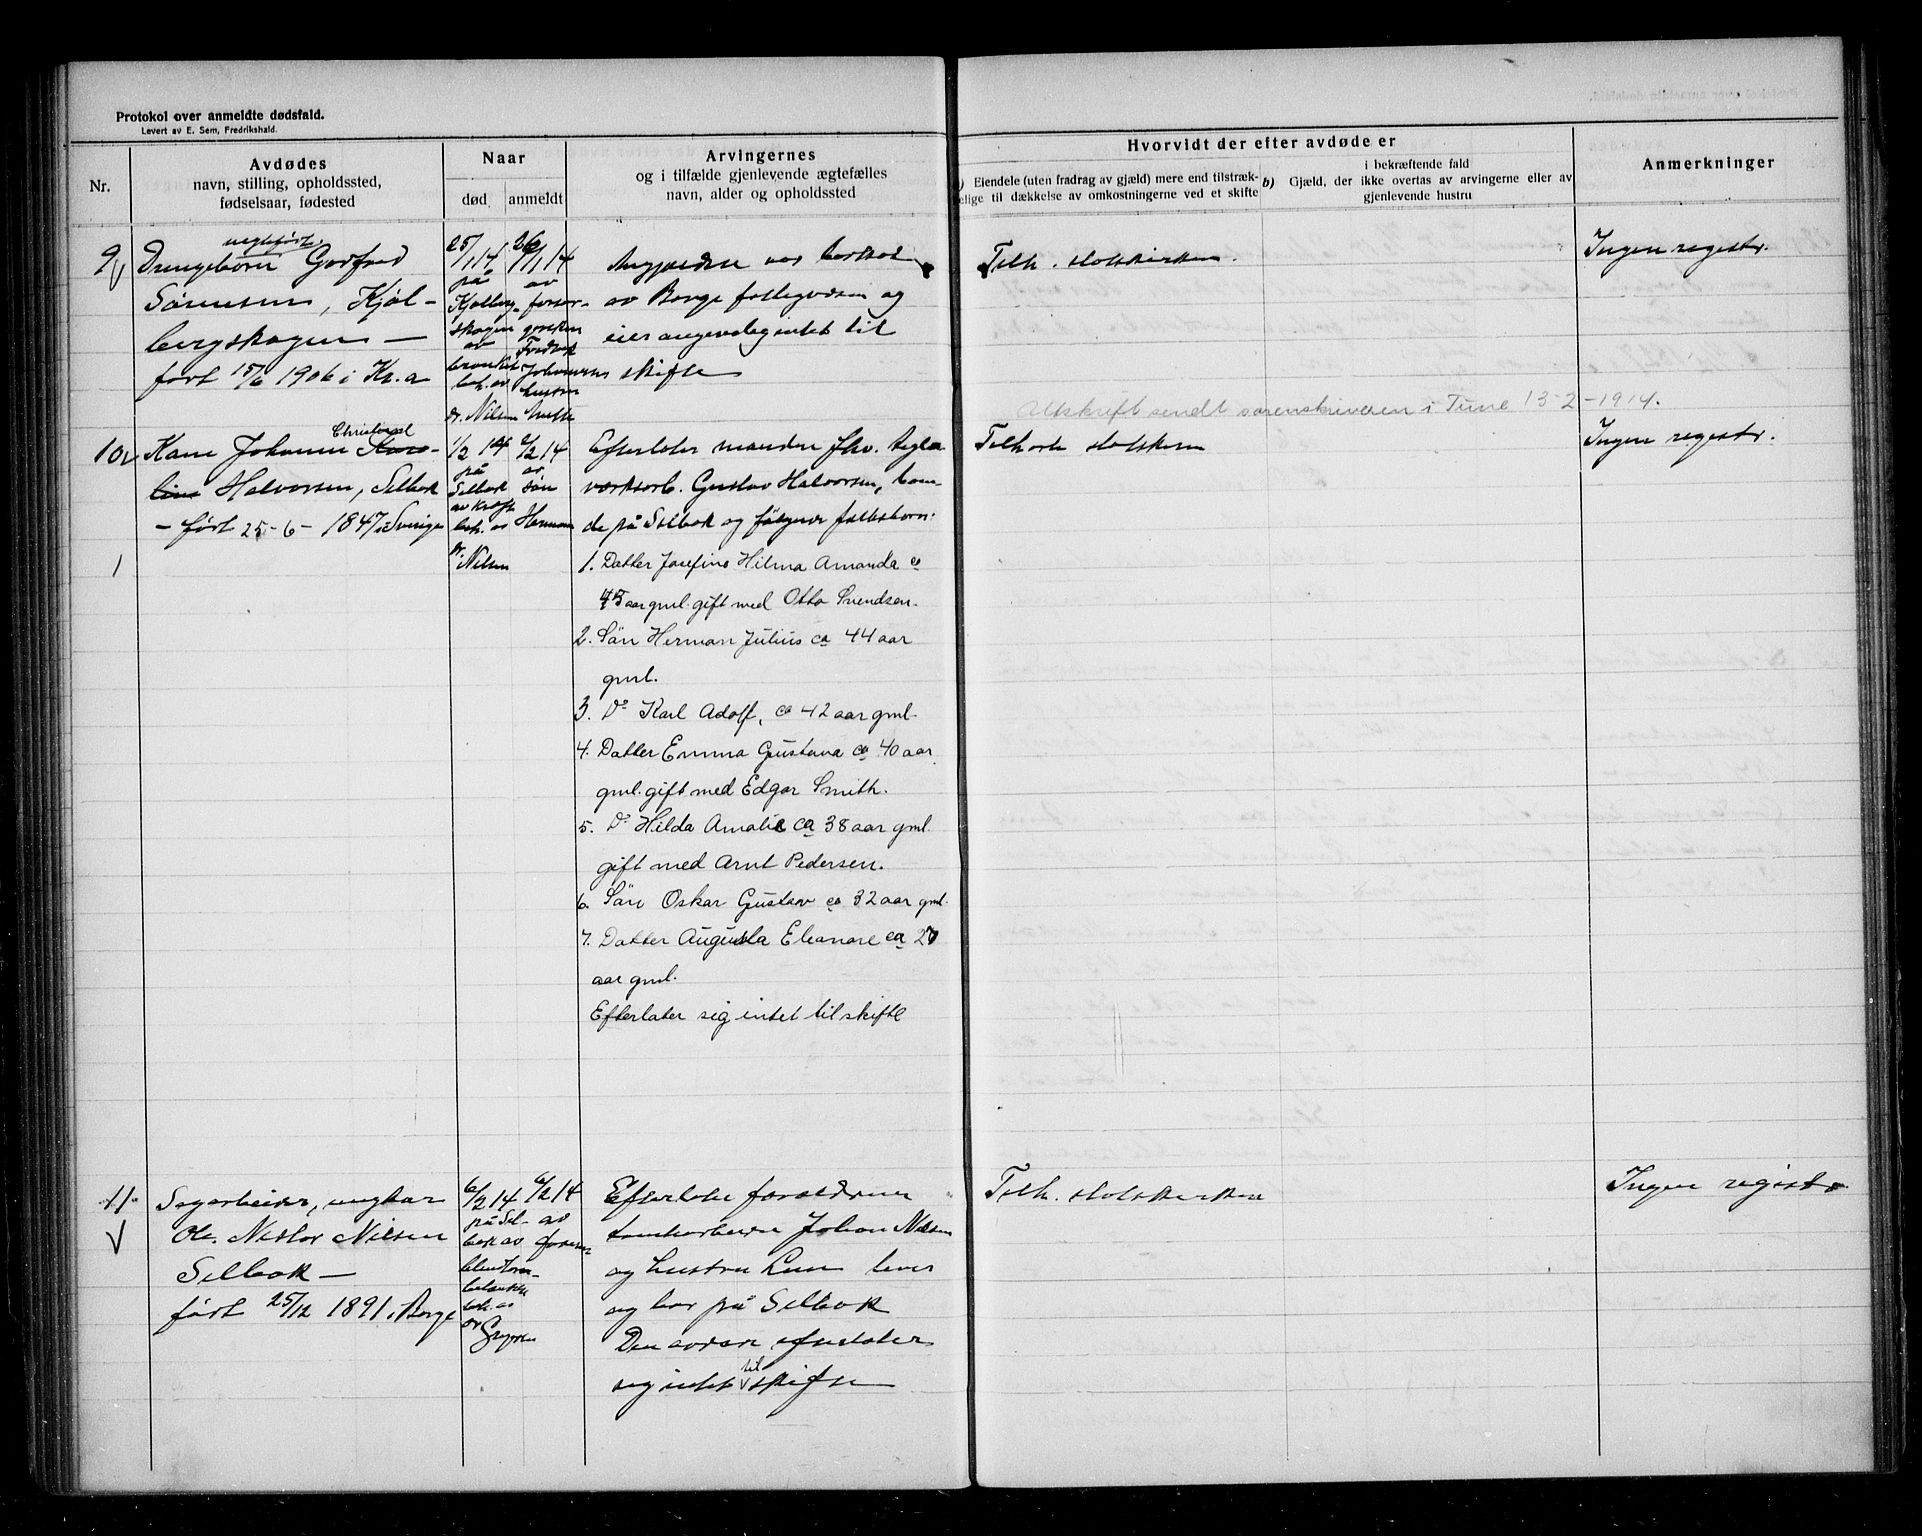 Protokol over anmeldte dødsfald.
Levert av E. Sem, Fredrikshald.
Nr.
Avdødes
navn, stilling, opholdssted,
fødselsaar, fødested
Naar
død
anmeldt
Arvingernes
og i tilfælde gjenlevende ægtefælles
navn, alder og opholdssted
Hvorvidt der efter avdøde er
a) Eiendele (uten fradrag av gjæld) mere end tilstræk-
kelige til dækkelse av omkostningerne ved et skifte
i bekræftende fald
b) Gjæld, der ikke overtas av arvingerne eller av
gjenlevende hustru
Anmerkninger
9
Drengebarn Godfred
Sørensen, Kjøl-
bergskogen —
født 15/6 1906 i Kr.a
25/1 14
på
Kjølberg-
skogen
av
beh. av
dr. Nilsen
26/1 14
av
forsør-
gersken
Fredrik
Johansens
hustru
av Borge fattigvæsen og
eier angivelig intet til
skifte
Tilh. statskirken.
Ingen registr.
Avskrift sendt sorenskriveren i Tune 13-2-1914.
10
Karen Johanne Karo-
Christensd
line Halvorsen, Selbak
- født 25-6-1847 i Sverige
1
1/2 14
på
Selbak
av kræft
beh. av
dr.
Nilsen
2/2 14
av
søn
Herman
Efterlater manden fhv. tegl-
værksarb. Gustav Halvorsen, boen-
de på Selbak og følgende fællesbarn:
1. Datter Josefine Hilma Amanda ca
45 aar gml. gift med Otto Svendsen.
2. Søn Herman Julius ca 44 aar
gml.
3. Do Karl Adolf, ca 42 aar gml.
4. Datter Emma Gustava ca 40 aar
gml. gift med Edgar Smith.
5. Do Hilda Amalie ca 38 aar gml.
gift med Arnt Pedersen.
6. Søn Oskar Gustav ca 32 aar gml.
7. Datter Augusta Eleanore ca 27
aar gml.
Efterlater sig intet til skifte
Tilhørte statskirken
Ingen registr.
11.
Sagarbeider, ungkar
Ole Nestor Nilsen
Selbak —
født 25/12 1891 i Borge
6/2 14
på Sel-
bak av
blindtarm-
beh. av
dr
6/2 14
av
Efterlater forældrene
tomtearbeider Johan Nilsen
og hustru Lina lever
og bor på Selbak
Den avdøde efterlater
sig intet til skifte
Tilh. statskirken
Ingen registr.